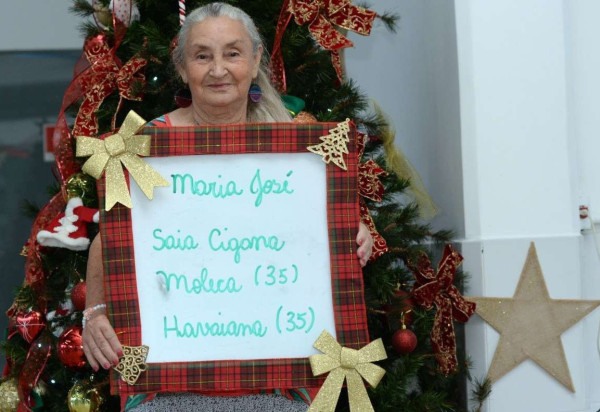 Maria José
Saia Cigana
Moleca (35)
Havaiana (35)